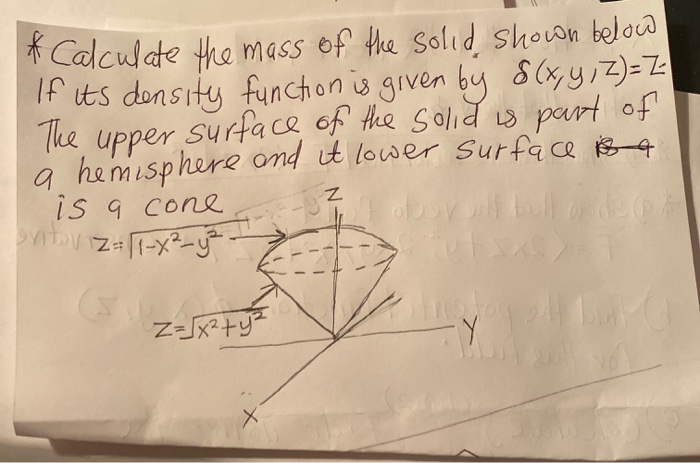 * Calculate the mass of the solid shown below
If its density function is given by δ(x,y,z)=z.
The upper surface of the solid is part of
a hemisphere and it lower surface is a
is a cone
Z
Z=√1-x²-y²
Z=√x²+y²
Y
X